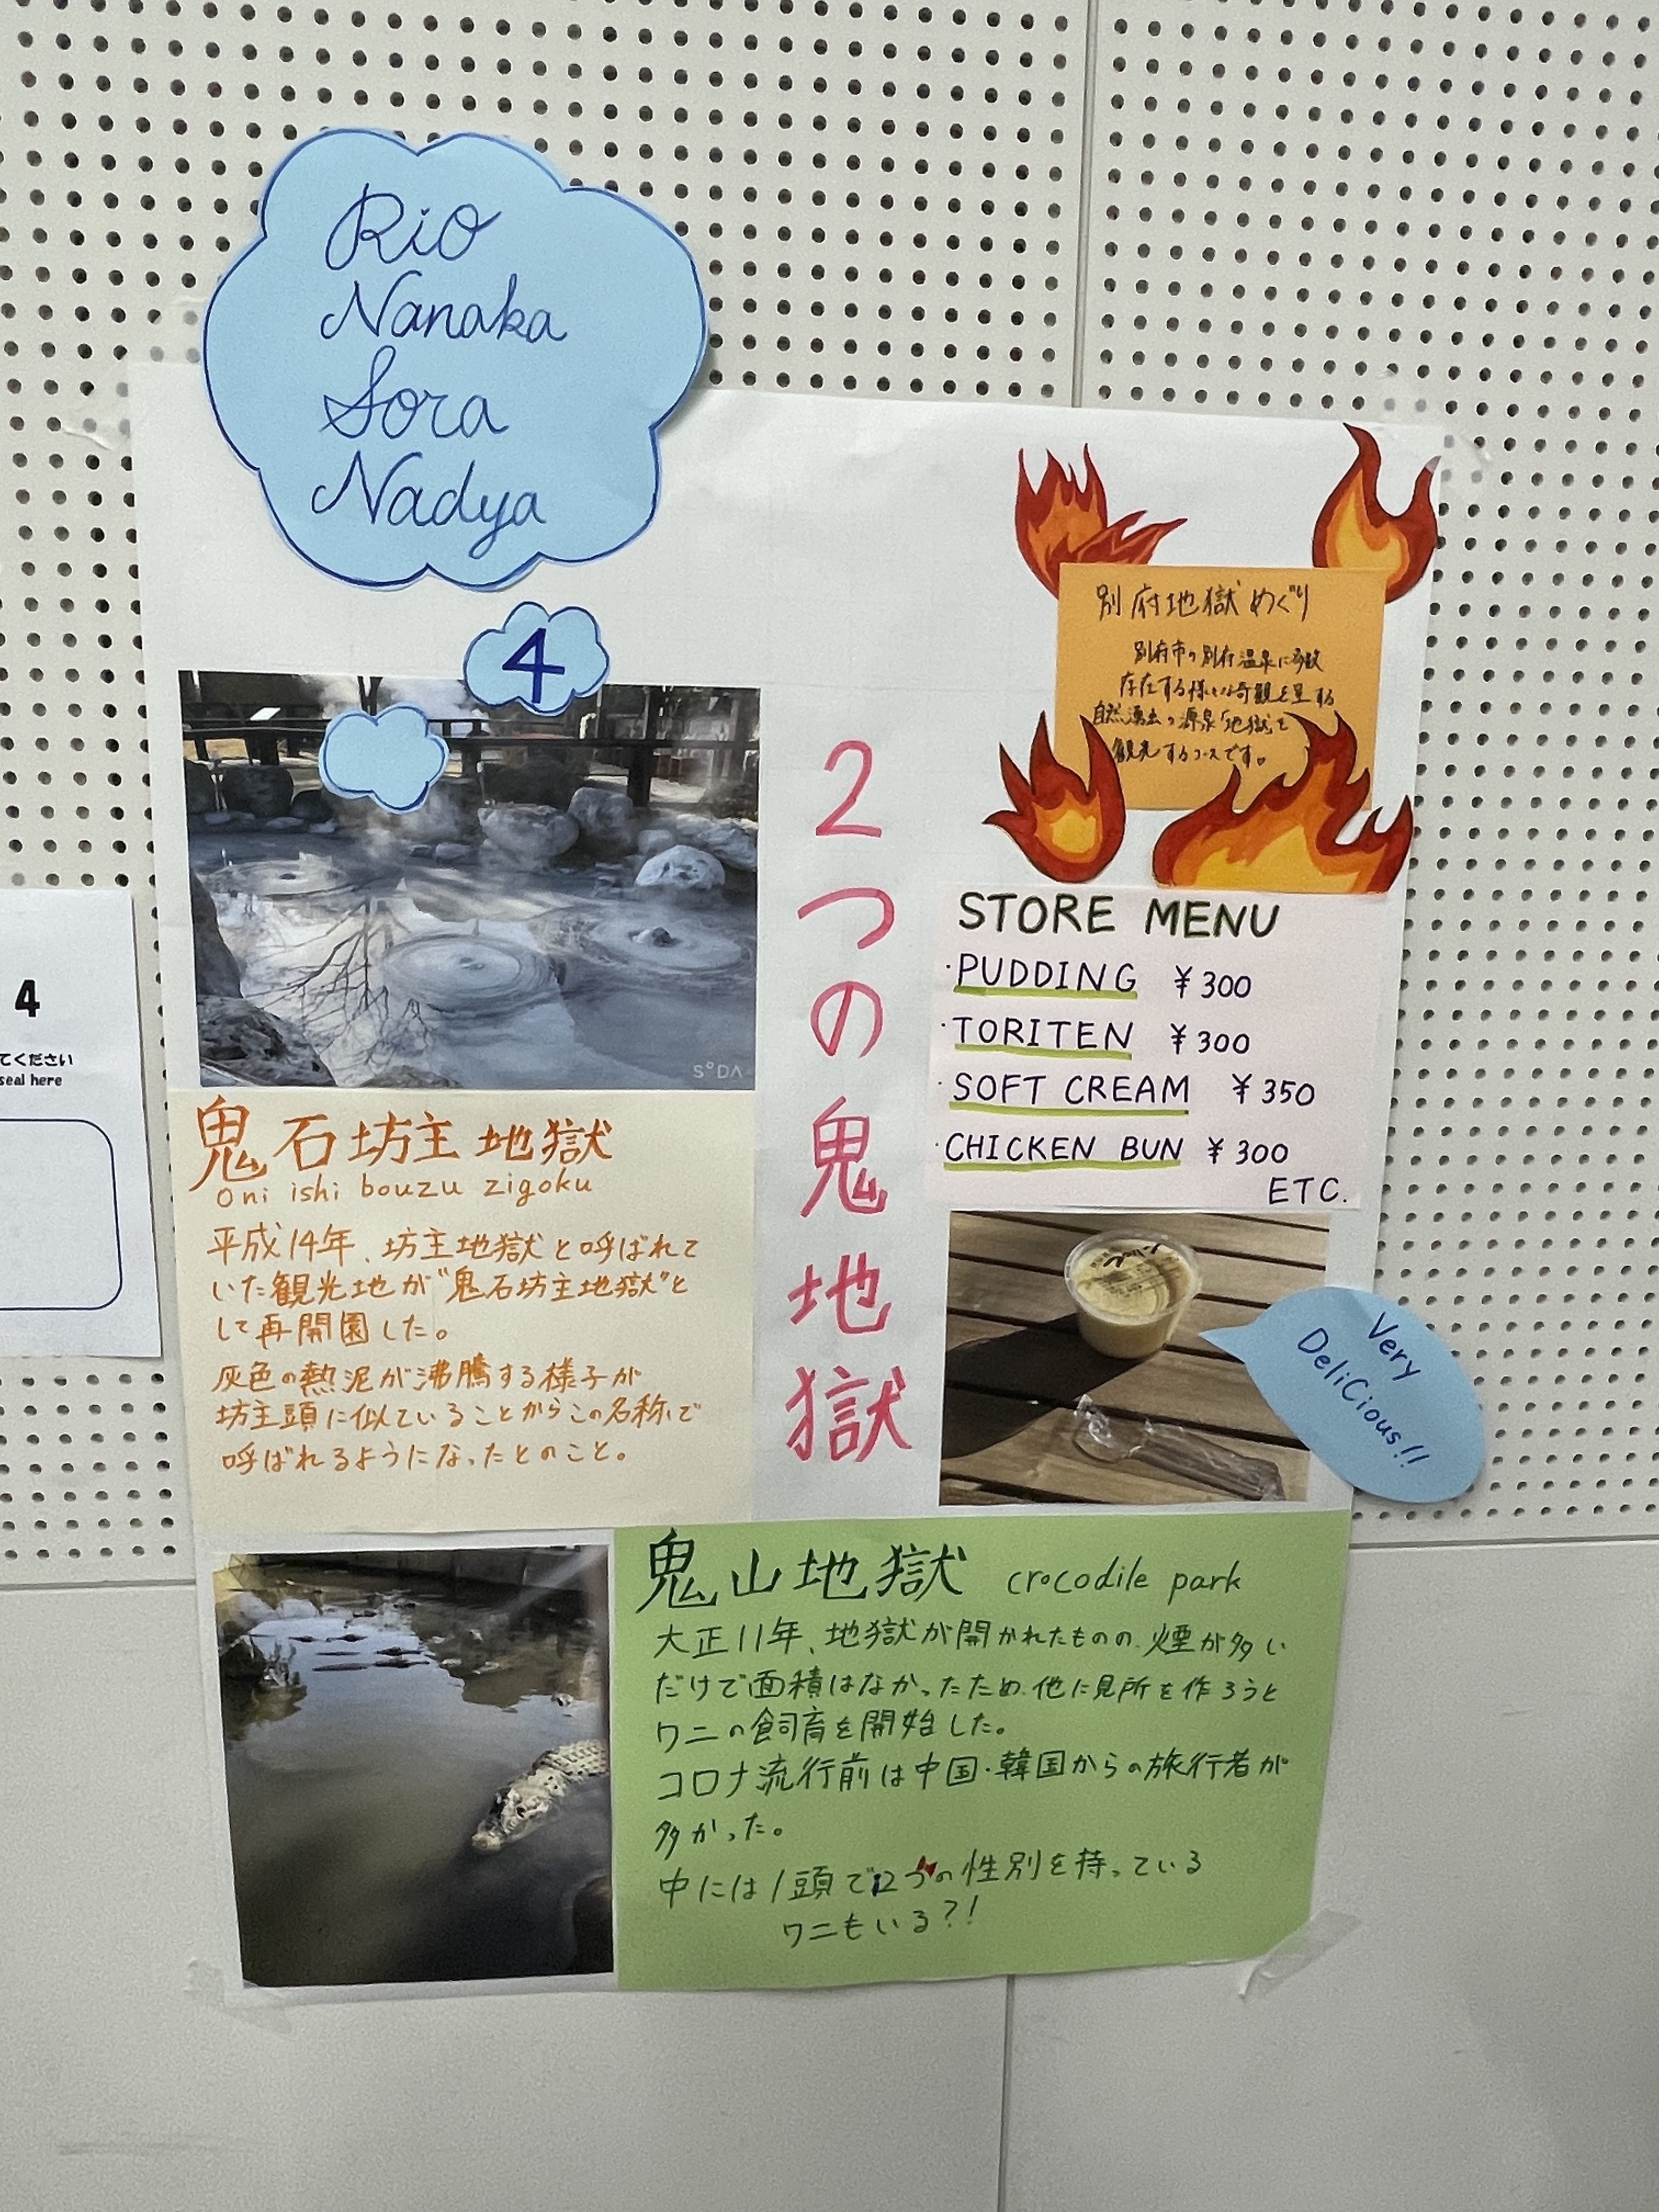 Rio
Nanaka
Sora
Nadya
4
別府地獄めぐり
別府市の別府温泉に多数
存在する様々な奇観を呈する
自然湧出の源泉「地獄」を
観光するコースです。
2つの鬼地獄
STORE MENU
・PUDDING ¥300
・TORITEN ¥300
・SOFT CREAM ¥350
・CHICKEN BUN ¥300
ETC.
Very
DeliCious!!
SODA
鬼石坊主地獄
Oni ishi bouzu zigoku
平成14年、坊主地獄と呼ばれて
いた観光地が"鬼石坊主地獄"と
して再開園した。
灰色の熱泥が沸騰する様子が
坊主頭に似ていることからこの名称で
呼ばれるようになったとのこと。
鬼山地獄 crocodile park
大正11年、地獄が開かれたものの、煙が多い
だけで面積はなかったため、他に見所を作ろうと
ワニの飼育を開始した。
コロナ流行前は中国・韓国からの旅行者が
多かった。
中には1頭で2つの性別を持っている
ワニもいる?!
4
てください
seal here